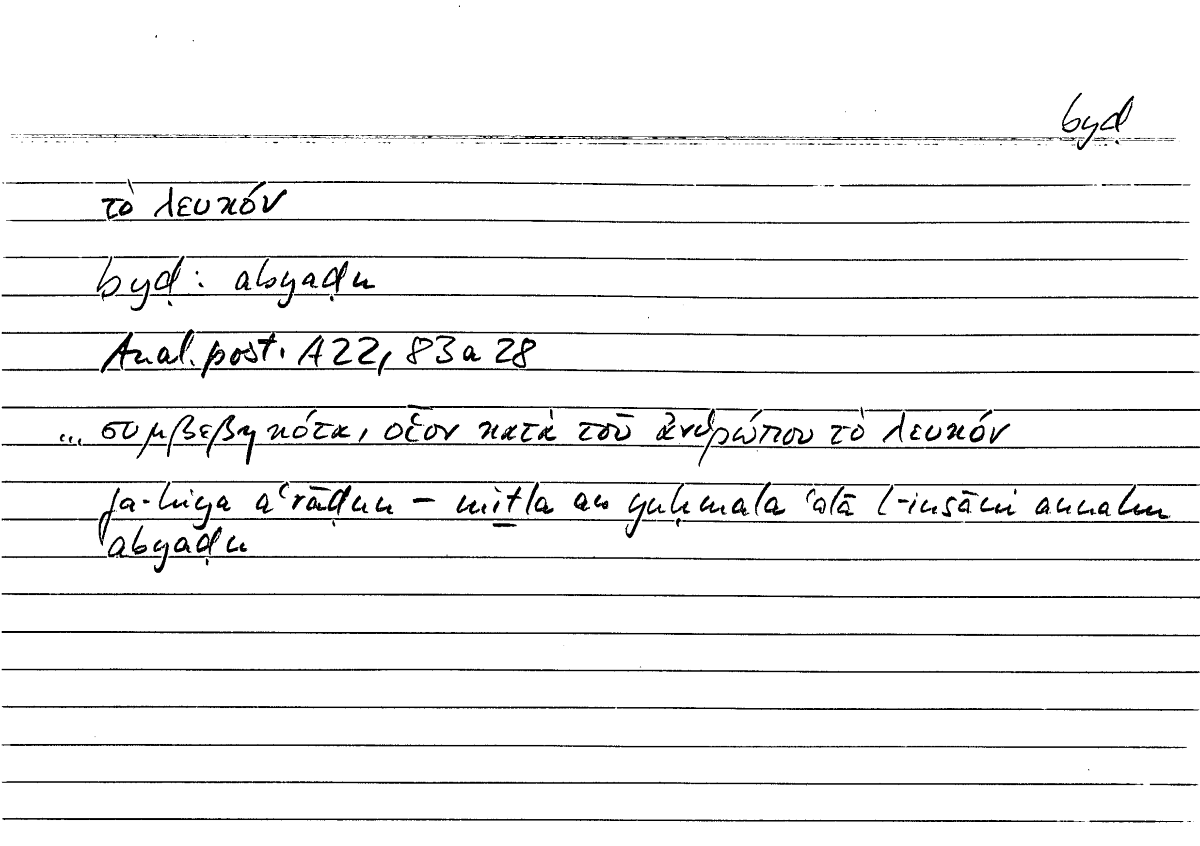 byḍ
τὸ λευκόν
byḍ: abyaḍu
Anal. post. A22, 83 a 28
... συμβεβηκότα, οἷον κατὰ τοῦ ἀνθρώπου τὸ λευκόν
fa-hiya aʿrāḍun – miṯla an yuḥmala ʿalā l-insāni annahu
abyaḍu